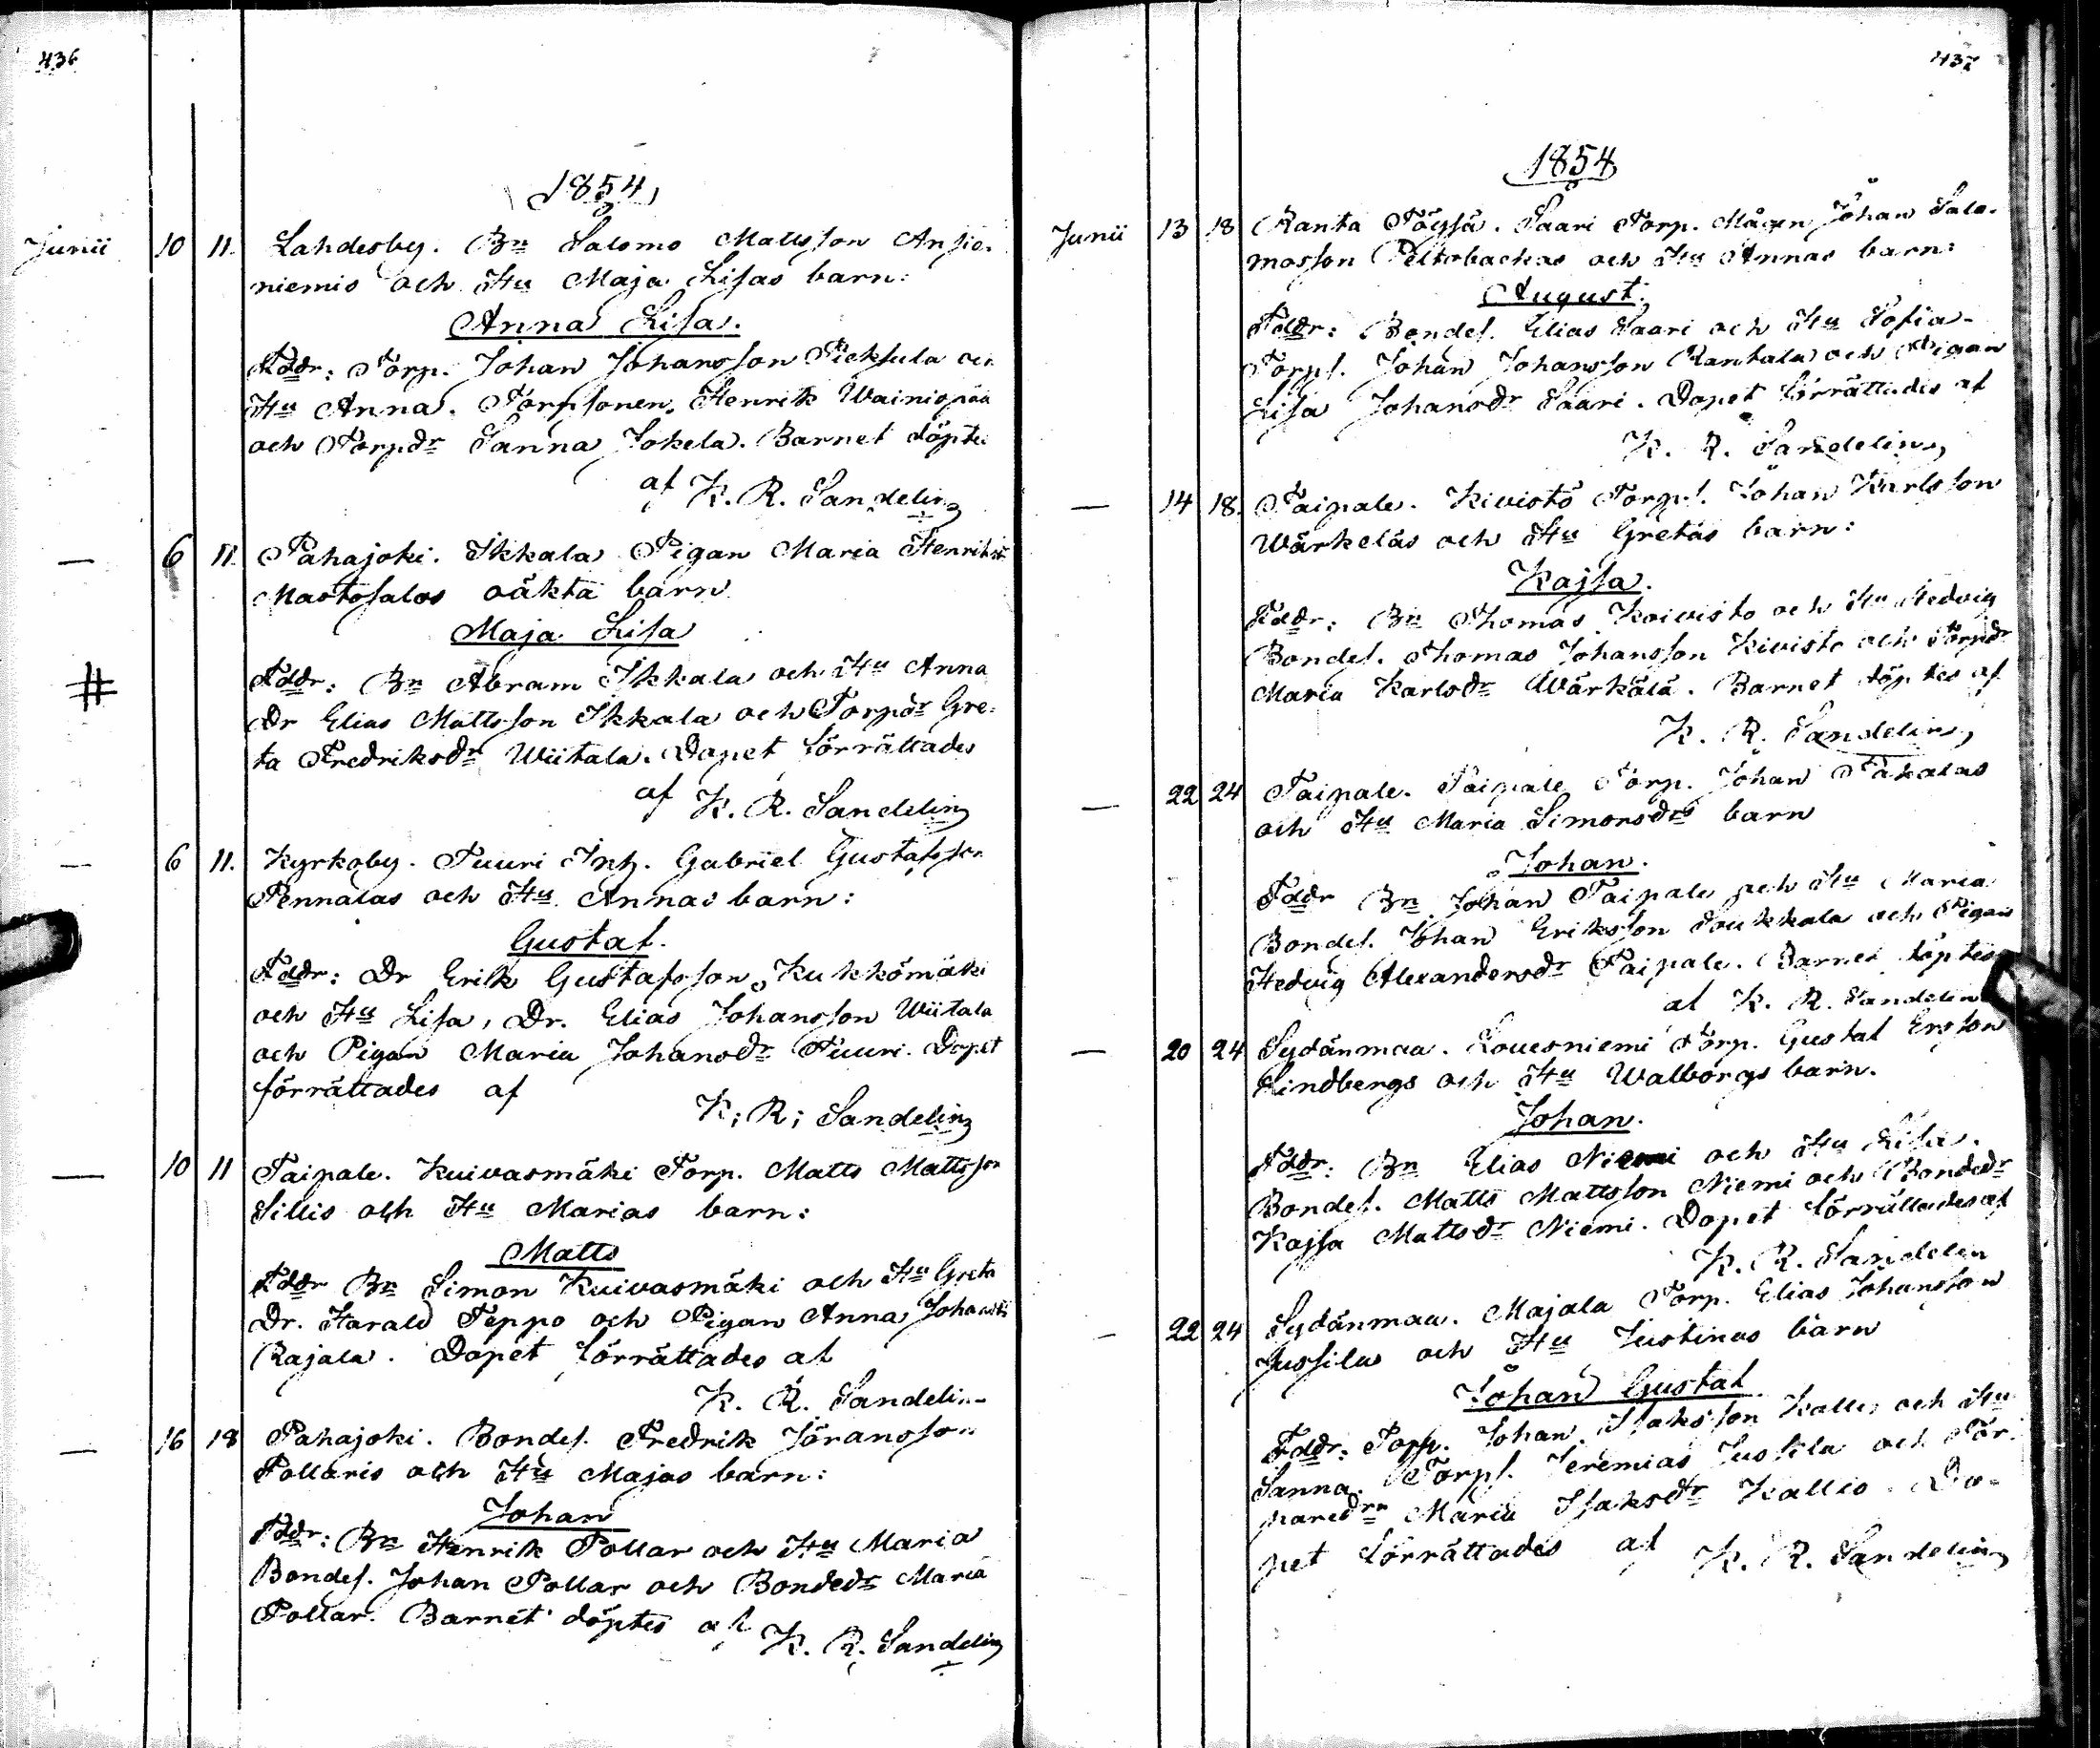 436
1854
Junii 10 11. Lahdesby. Bn Salomo Mattsson Ansio-
niemis och Hu Maja Lisas barn:
Anna Lisa.
Fddr: Torp. Johan Johansson Pieksula och
Hu Anna. Torpsonen Henrik Wainiopää
och Torpdr Sanna Jokela. Barnet döptes
af K. R. Sandelin
— 6 11. Pahajoki. Ikkala Pigan Maria Henriksdr
Mastosalos oäkta barn
Maja Lisa
# Fddr: Bn Abram Ikkala och Hu Anna
Dr Elias Mattsson Ikkala och Torpdr Gre-
ta Fredriksdr Wiitala. Dopet förrättades
af K. R. Sandelin
— 6 11. Kyrkoby. Tuuri Inh. Gabriel Gustafsson
Pennalas och Hu Annas barn:
Gustaf.
Fddr: Dr Erik Gustafsson Kukkomäki
och Hu Lisa, Dr. Elias Johansson Wiitala
och Pigan Maria Johansdr Tuuri. Dopet
förrättades af
K; R; Sandelin
— 10 11 Taipale. Kuivasmäki Torp. Matts Mattsson
Sillis och Hu Marias barn:
Matts
Fddr Bn Simon Kuivasmäki och Hu Greta
Dr. Harald Teppo och Pigan Anna Johansdr
Rajala. Dopet förrättades af
K. R. Sandelin
— 16 18 Pahajoki. Bondes. Fredrik Jöransson
Pollaris och Hu Majas barn:
Johan
Fddr: Bn Henrik Pollar och Hu Maria
Bondes. Johan Pollar och Bondedr Maria
Pollar. Barnet döptes af K. R. Sandelin
437
1854
Junii 13 18 Ranta Töysä. Saari Torp. Mågen Johan Salo-
mosson Peltobackas och Hu Annas barn:
August.
Fddr: Bondes. Elias Saari och Hu Sofia-
Torps. Johan Johansson Rantala och Pigan
Lisa Johansdr Saari. Dopet förrättades af
K. R. Sandelin
— 14 18. Taipale. Kivistö Torps. Johan Karlsson
Wärkeläs och Hu Gretas barn:
Kajsa.
Fddr: Bn Thomas Koivisto och Hu Hedvig
Bondes. Thomas Johansson Kivisto och Torpdr
Maria Karlsdr Wärkälä. Barnet döptes af
K. R. Sandelin
— 22 24 Taipale. Taipale Torp. Johan
och Hu Maria Simonsdrs barn
Johan.
Fddr Bn Johan Taipale och Hu Maria
Bondes. Johan Eriksson Soukkala och Pigan
Hedvig Alexandersdr Taipale. Barnet döptes
af K. R. Sandelin
— 20 24 Sydänmaa. Louesniemi Torp. Gustaf Ersson
Lindbergs och Hu Walborgs barn.
Johan.
Fddr: Bn Elias Niemi och Hu Lisa.
Bondes. Matts Mattsson Niemi och Bondedr
Kajsa Mattsdr Niemi. Dopet förrättades af
K. R. Sandelin
— 22 24 Sydänmaa. Majala Torp. Elias Johansson
Jussilas och Hu Justinas barn
Johan Gustaf.
Fddr: Torp. Johan Isaksson Kallio och Hu
Sanna. Torps. Jeremias Jussila och Tor-
paredrn Maria Isaksdr Kallio. Do-
pet förrättades af K. R. Sandelin